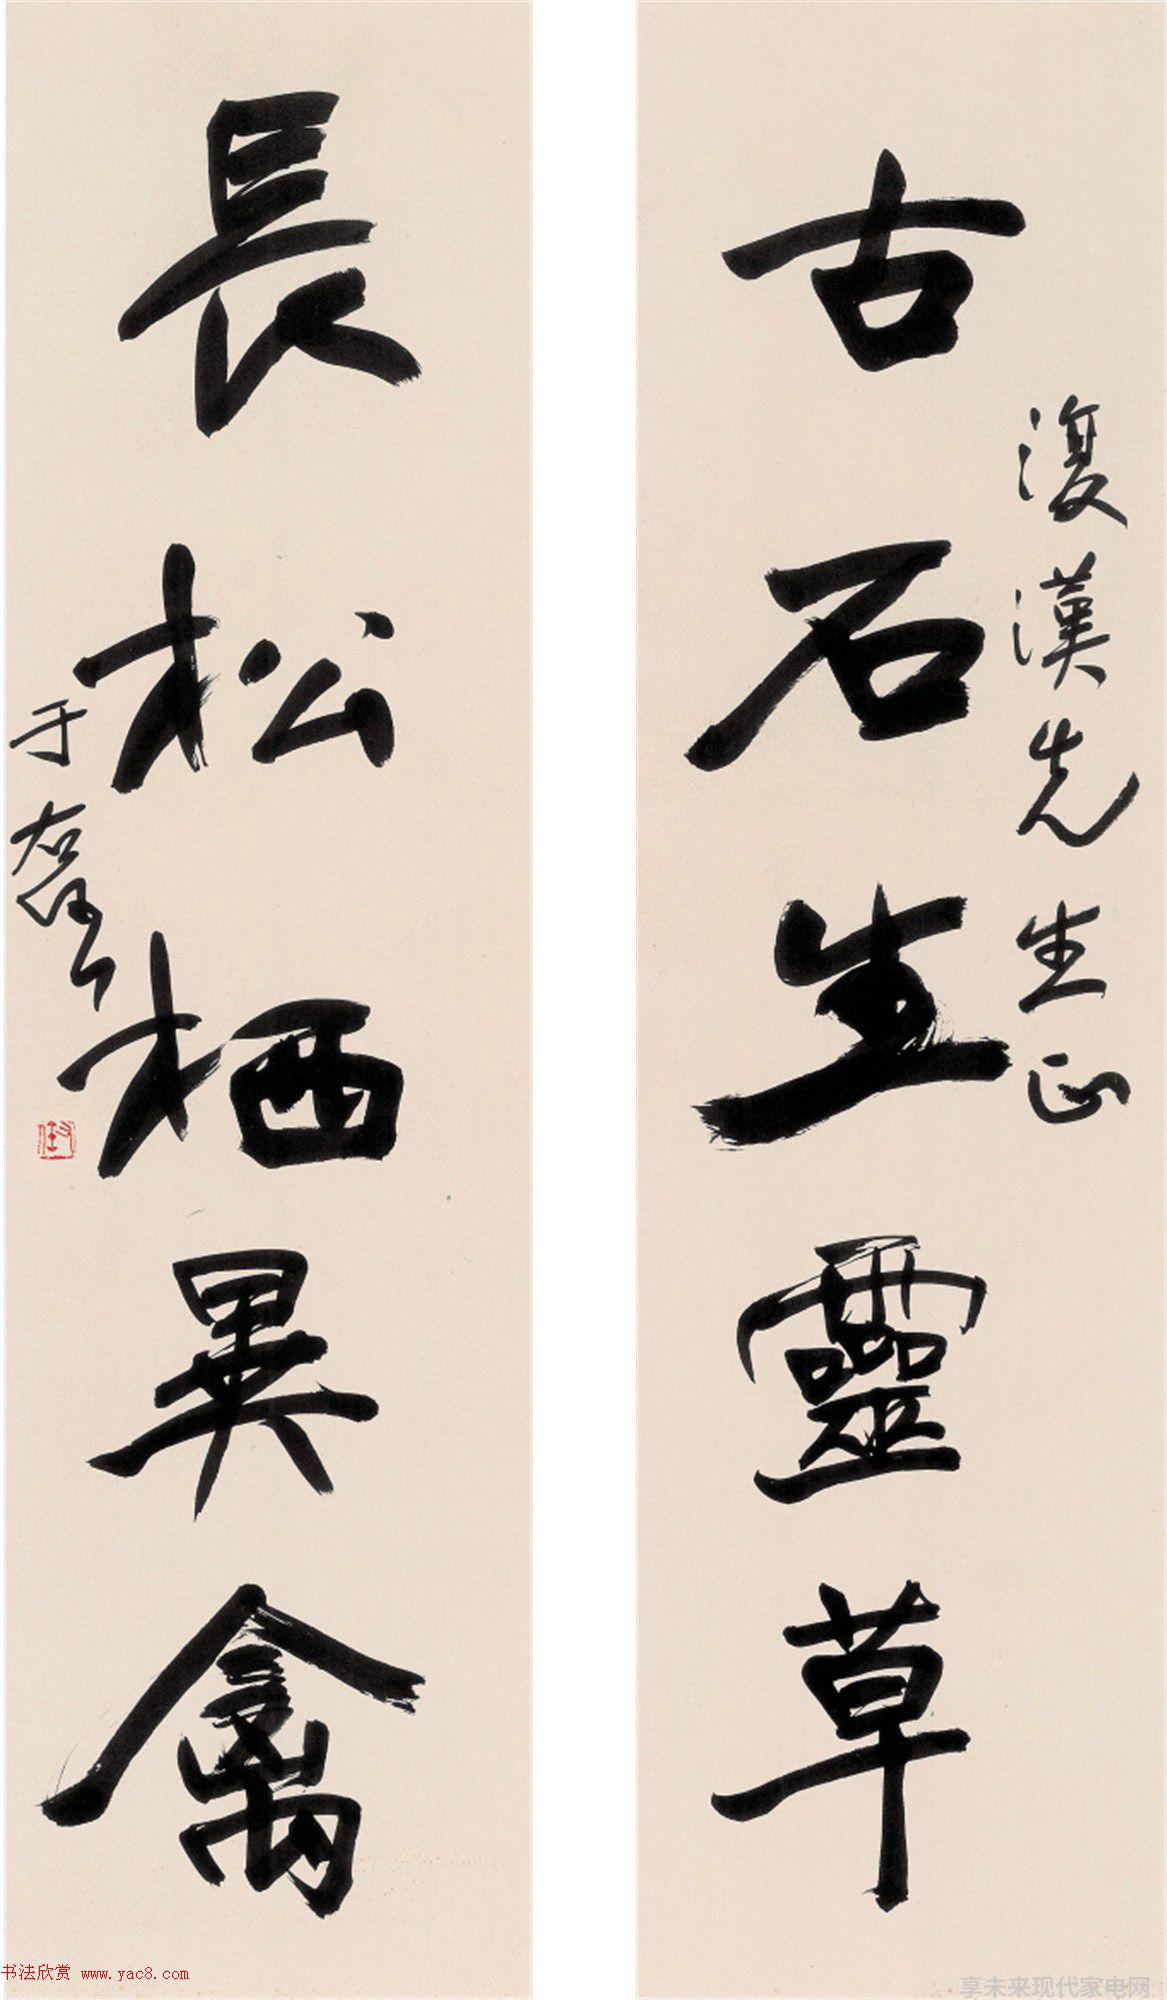 古石生靈草
復漢先生正
長松栖異禽
于右任
书法欣赏 www.yac8.com
享未来现代家电网